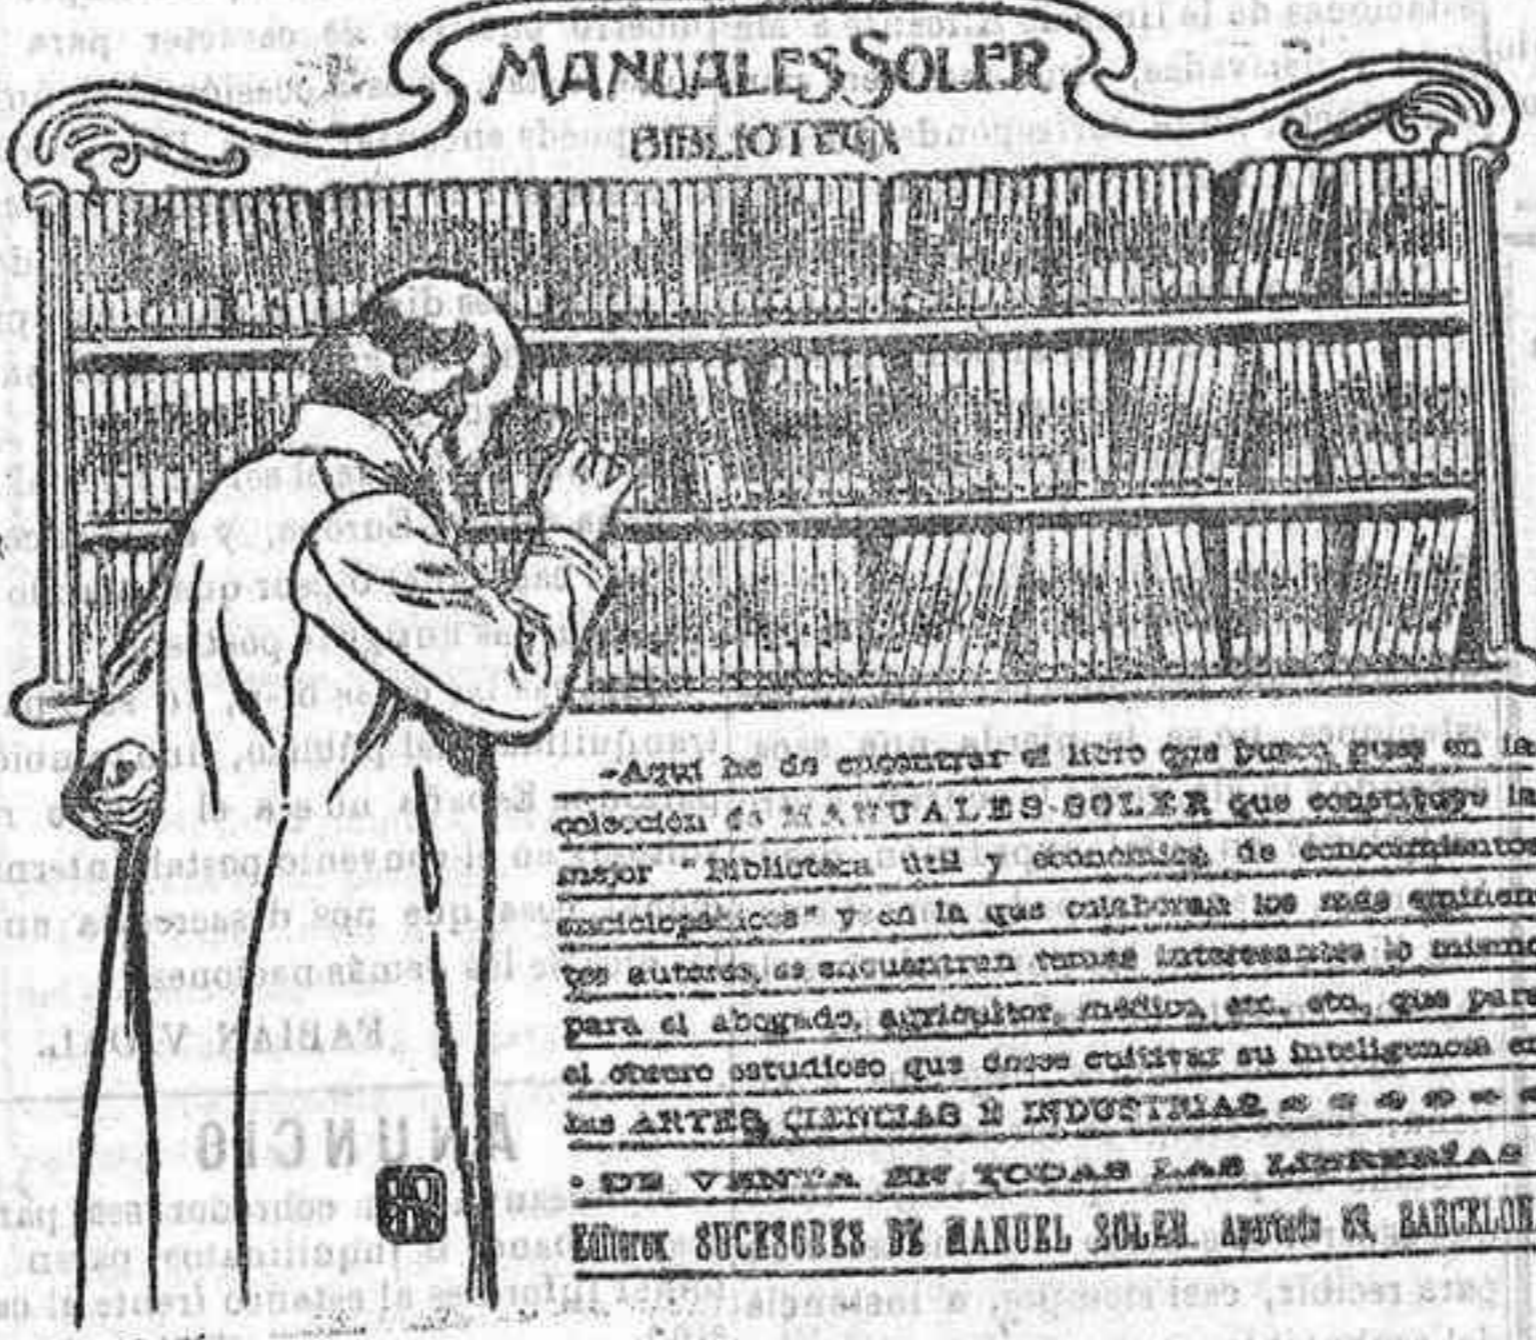 MANUALES SOLER
BIBLIOTECA
-Aquí he de encontrar el libro que busco, pues en la
colección de MANUALES-SOLER que constituye la
major "Biblioteca útil y económica de conocimientos
enciclopédicos" y en la que colaboran los más eminen
tes autores, se encuentran temas interesantes lo mismo
para el abogado, agricultor, médico, etc. etc., que para
el obrero estudioso que desee cultivar su inteligencia en
las ARTES, CIENCIAS E INDUSTRIAS
DE VENTA EN TODAS LAS LIBRERÍAS
Editores SUCESORES DE MANUEL SOLER. Apartado 89, BARCELON